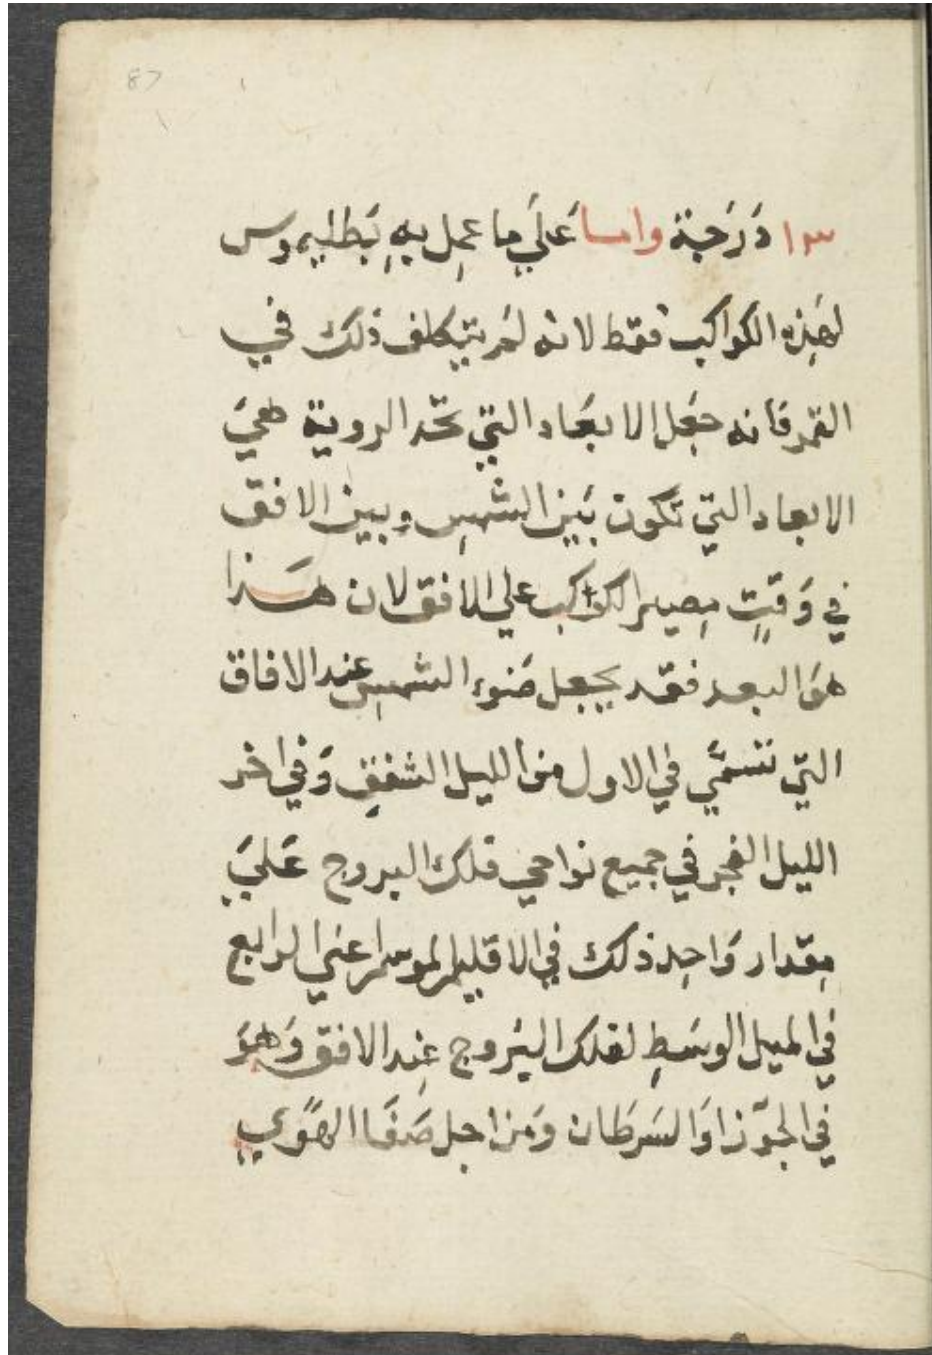 87
١٣ دَرَجَة واما عَلَي ما عمِل بِهِ بَطليموس
لهَذِه الكواكب فقط لانه لم يتكلف ذلك في
القمر فَانه جعَل الابعَاد التي تحد الروية هيَ
الابعاد التي تكون بَين الشمسِ وبين الافق
في وَقتٍ مصير الكواكب علي الافق لان هَذا
هوَ البعد فقد يجعل ضَوء الشمسِ عند الافاق
التي تسمَّي في الاول من الليل الشفق وَفي اخر
الليل الفجر في جميع نواحي فلك البروج عَليَ
مِقدار وَاحِد ذلك في الاقليم المرسوم اعني الرابع
في الميل الوسَطِ لفلك البُروج عِند الافق وَهوَ
في الجَوزا وَالسَرطَان وَمن اجل صَفَا الهَوي